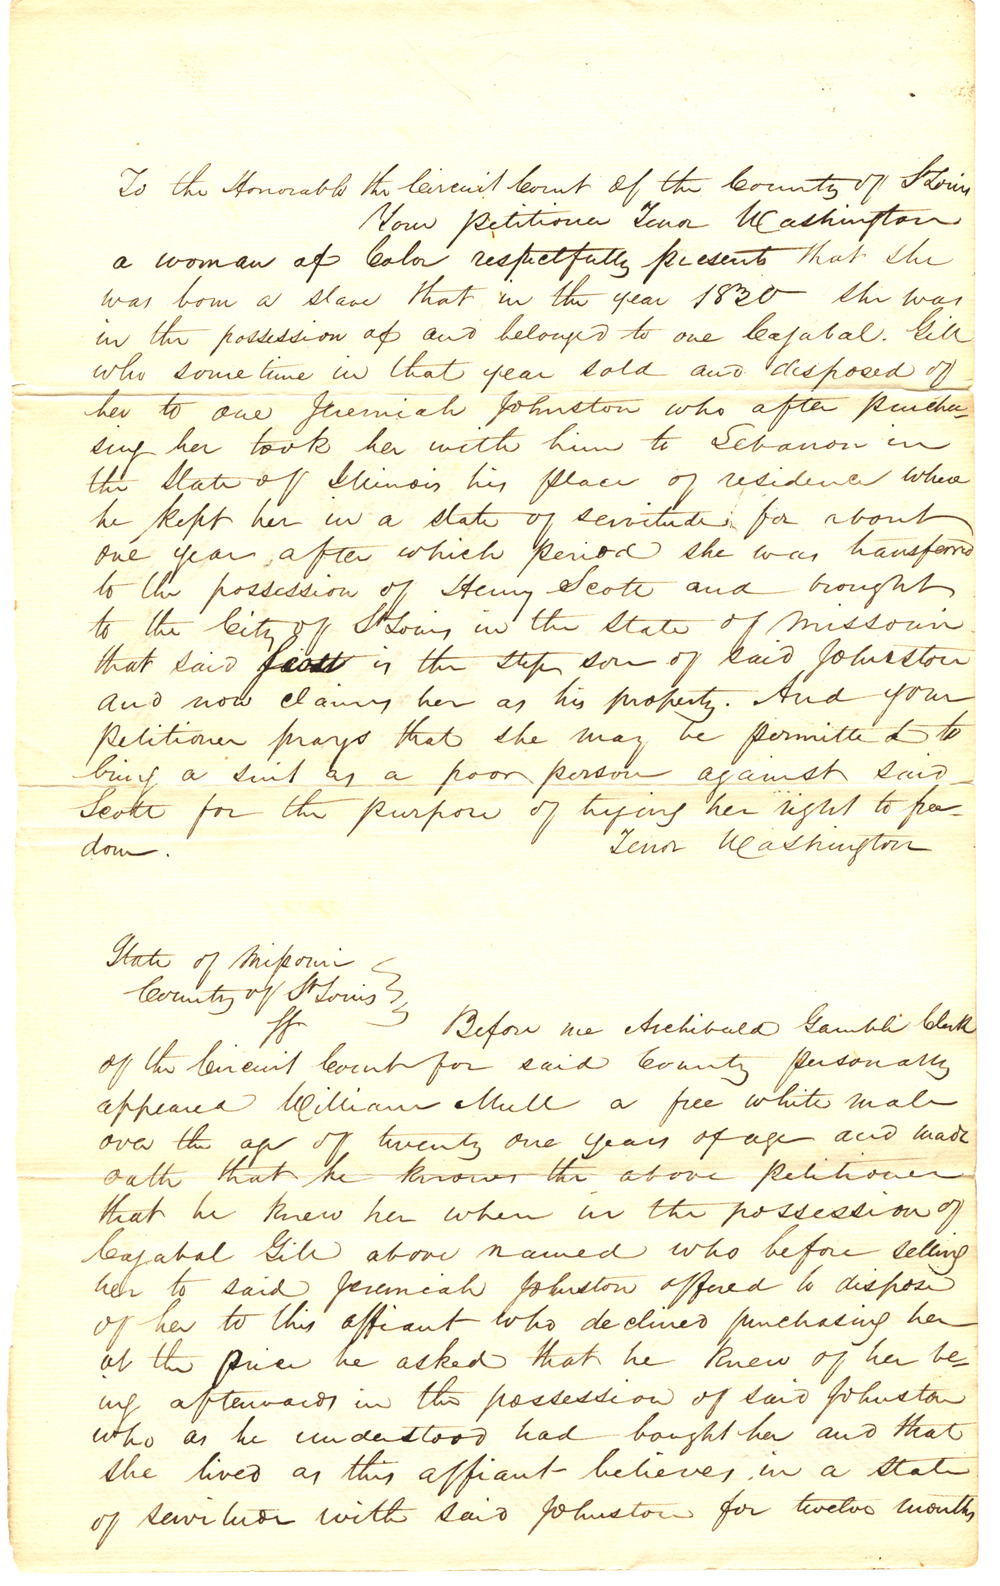 To the Honorable the Circuit Court of the County of St Louis
Your petitioner Tenor Washington
a woman of Color respectfully presents that she
was born a slave that in the year 1830 she was
in the possession of and belonged to one Cajabal. Gill
who sometime in that year sold and disposed of
her to one Jeremiah Johnston who after purcha-
sing her took her with him to Lebanon in
the State of Illinois his place of residence where
he kept her in a state of servitude for about
one year after which period she was transferred
to the possession of Henry Scott and brought
to the City of St Louis in the State of Missouri
that said Scott is the step son of said Johnston
and now claims her as his property. And your
petitioner prays that she may be permitted to
bring a suit as a poor person against said
Scott for the purpose of trying her right to free-
dom. Tenor Washington
State of Missouri
County of St Louis
ss Before me Archibald Gamble Clerk
of the Circuit Court for said County personally
appeared William Mull a free white male
over the age of twenty one years of age and made
oath that he knows the above petitioner
that he knew her when in the possession of
Cajabal Gill above named who before selling
her to said Jeremiah Johnston offered to dispose
of her to this affiant who declined purchasing her
at the price he asked that he knew of her be-
ing afterwards in the possession of said Johnston
who as he understood had bought her and that
she lived as this affiant believes in a state
of servitude with said Johnston for twelve months